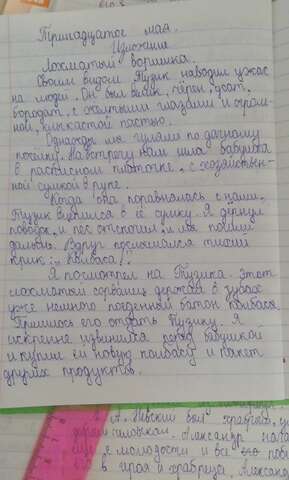 Тринадцатое мая.
Изложение
Лохматый воришка.
Своим видом Тузик наводил ужас
на людей. Он был велик, чёрен, усат,
бородат, с желтыми глазами и огром-
ной, клыкастой пастью.
Однажды мы гуляли по дачному
посёлку. На встречу нам шла бабушка
в расписном платочке, с хозяйствен-
ной сумкой в руке.
Когда она поравнялась с нами,
Тузик вцепился в её сумку. Я дёрнул
поводок, и пёс отскочил, и мы пошли
дальше. Вдруг послышался тихий
крик: „Колбаса!"
Я посмотрел на Тузика. Этот
лохматый сорванец держал в зубах
уже немного поеденный батон колбасы
Пришлось его отдать Тузику. Я
искренне извинился перед бабушкой
и купил ей новую колбасу и пакет
других продуктов.
А. Невский был храбрым,
Александр
ещё с молодости и все его
его в героя и храбреца. Александр